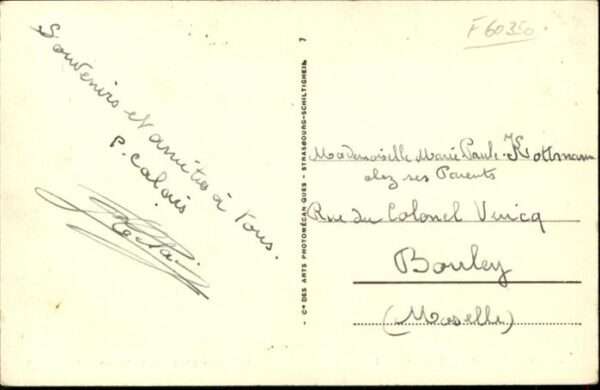 F60350
Souvenirs et amitiés à Vous.
P. Calais
7
- Cie DES ARTS PHOTOMÉCANIQUES - STRASBOURG-SCHILTIGHEIM
Mademoiselle Marie Paule Kottmann
chez ses Parents
Rue du Colonel Vincq
Bouley
(Moselle)